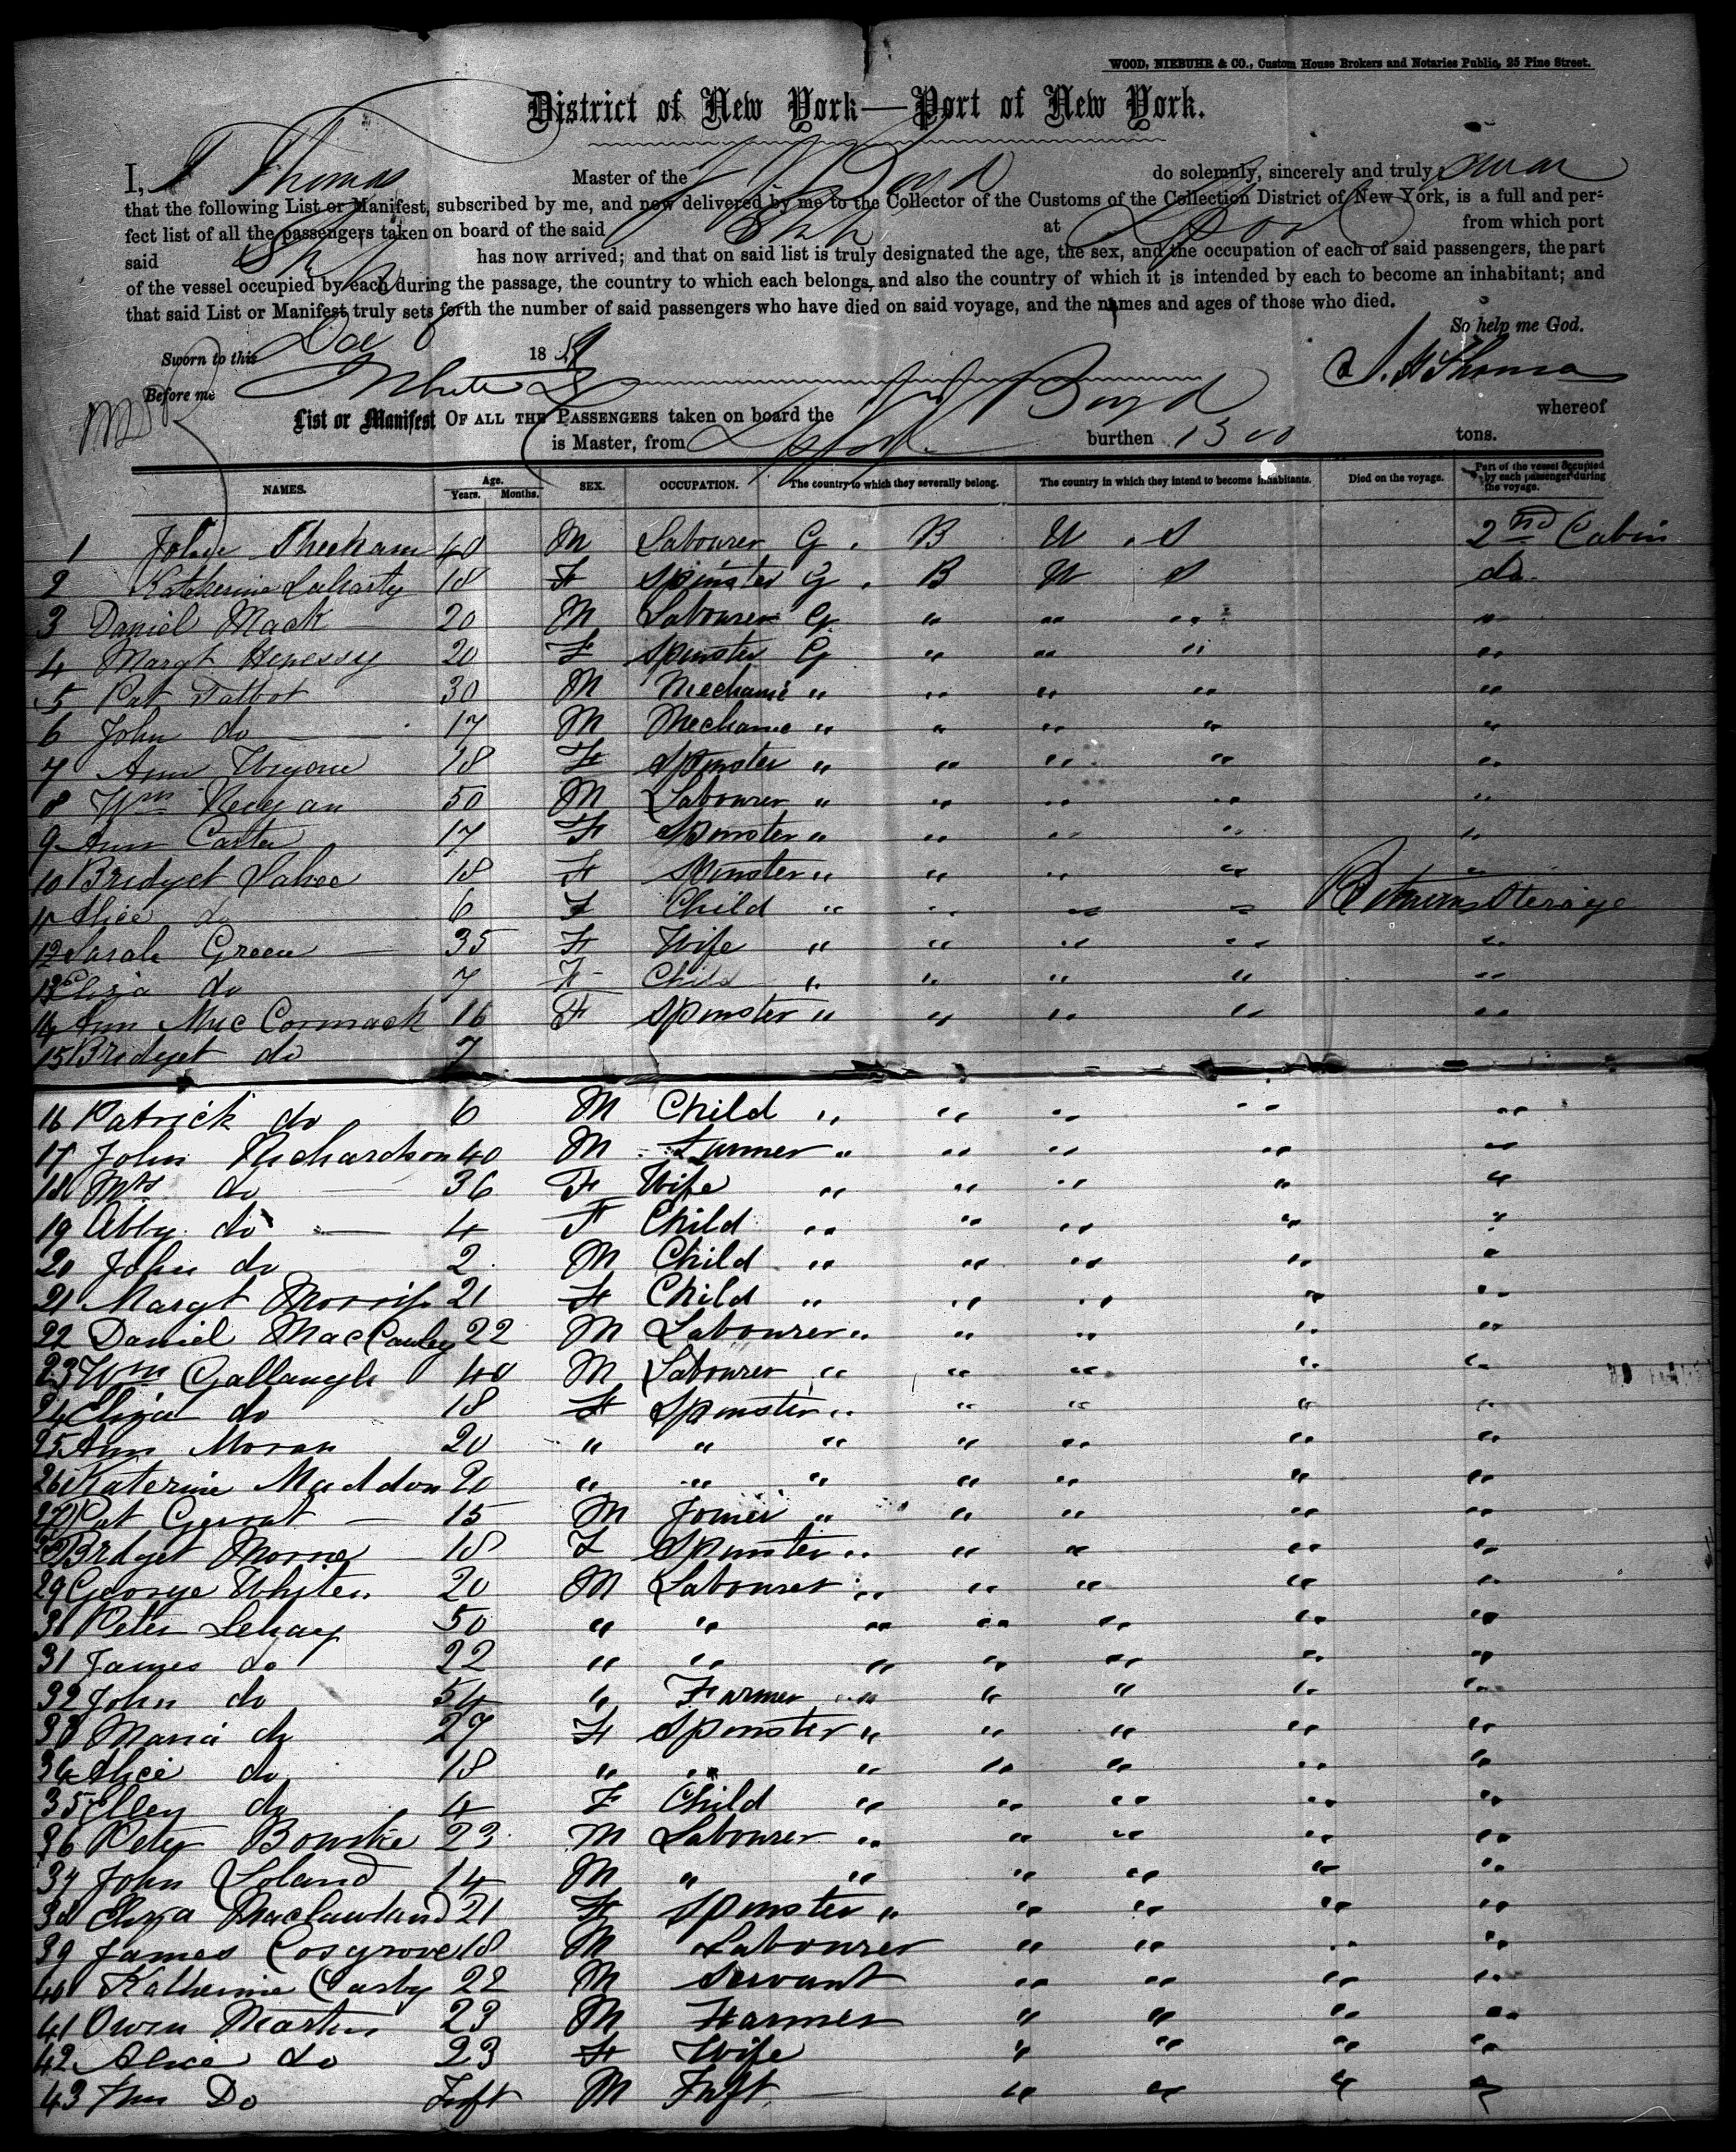 WOOD, NIEBUHR & CO., Custom House Brokers and Notaries Public, 25 Pine Street.
District of New York—Port of New York.
I, Thomas Master of the Boyd do solemnly, sincerely and truly swear
that the following List or Manifest, subscribed by me, and now delivered by me to the Collector of the Customs of the Collection District of New York, is a full and per-
fect list of all the passengers taken on board of the said Ship at from which port
said Ship has now arrived; and that on said list is truly designated the age, the sex, and the occupation of each of said passengers, the part
of the vessel occupied by each during the passage, the country to which each belongs, and also the country of which it is intended by each to become an inhabitant; and
that said List or Manifest truly sets forth the number of said passengers who have died on said voyage, and the names and ages of those who died.
So help me God.
Sworn to this Dec 8 18
Before me Thomas
List or Manifest OF ALL THE PASSENGERS taken on board the Boyd whereof
is Master, from burthen 1300 tons.
NAMES. Age. Years. Months. SEX. OCCUPATION. The country to which they severally belong. The country in which they intend to become inhabitants. Died on the voyage. Part of the vessel occupied by each passenger during the voyage.
1 John Sheeham 40 M Labourer G. B U. S 2nd Cabin
2 Katherine 18 F Spinster G. B U S do.
3 Daniel Mack 20 M Labourer G " " " "
4 Margt Henessy 20 F Spinster G " " " "
5 Pat Talbot 30 M Mechanic " " " " "
6 John do 17 M Mechanic " " " " "
7 Ann 18 F Spinster " " " " "
8 Wm Reegan 50 M Labourer " " " " "
9 Ann Carter 17 F Spinster " " " " "
10 Bridget Lahee 18 F Spinster " " " " "
11 Alice do 6 F Child " " " " Steraige
12 Sarah Green 35 F Wife " " " " "
13 Eliza do 7 F Child " " " " "
14 Ann Mac Cormack 16 F Spinster " " " " "
15 Bridget do 7
16 Patrick do 6 M Child " " " " "
17 John Richardson 40 M Farmer " " " " "
18 Mrs do 36 F Wife " " " " "
19 Abby do 4 F Child " " " " "
20 John do 2 M Child " " " " "
21 Margt 21 F Child " " " " "
22 Daniel MacCauley 22 M Labourer " " " " "
23 Wm Gallaugh 40 M Labourer " " " " "
24 Eliza do 18 F Spinster " " " " "
25 Ann Moran 20 " " " " " " "
26 Katerine Maddon 20 " " " " " " "
27 Pat 15 M Joiner " " " " "
28 Brdget 18 F Spinster " " " " "
29 George Whyten 20 M Labourer " " " " "
30 Peter Lehay 50 " " " " " " "
31 James do 22 " " " " " " "
32 John do 54 " Farmer " " " " "
33 Maria do 27 F Spinster " " " " "
34 Alice do 18 " " " " " " "
35 Elley do 4 F Child " " " " "
36 Peter Bourke 23 M Labourer " " " " "
37 John 14 M " " " " " "
38 Eliza 21 F Spinster " " " " "
39 James Cosgrove 18 M Labourer " " " "
40 Katherine Casby 22 M Servant " " " "
41 Owen Martin 23 M Farmer " " " "
42 Alice do 23 F Wife " " " "
43 Do Inft M Inft " " " "